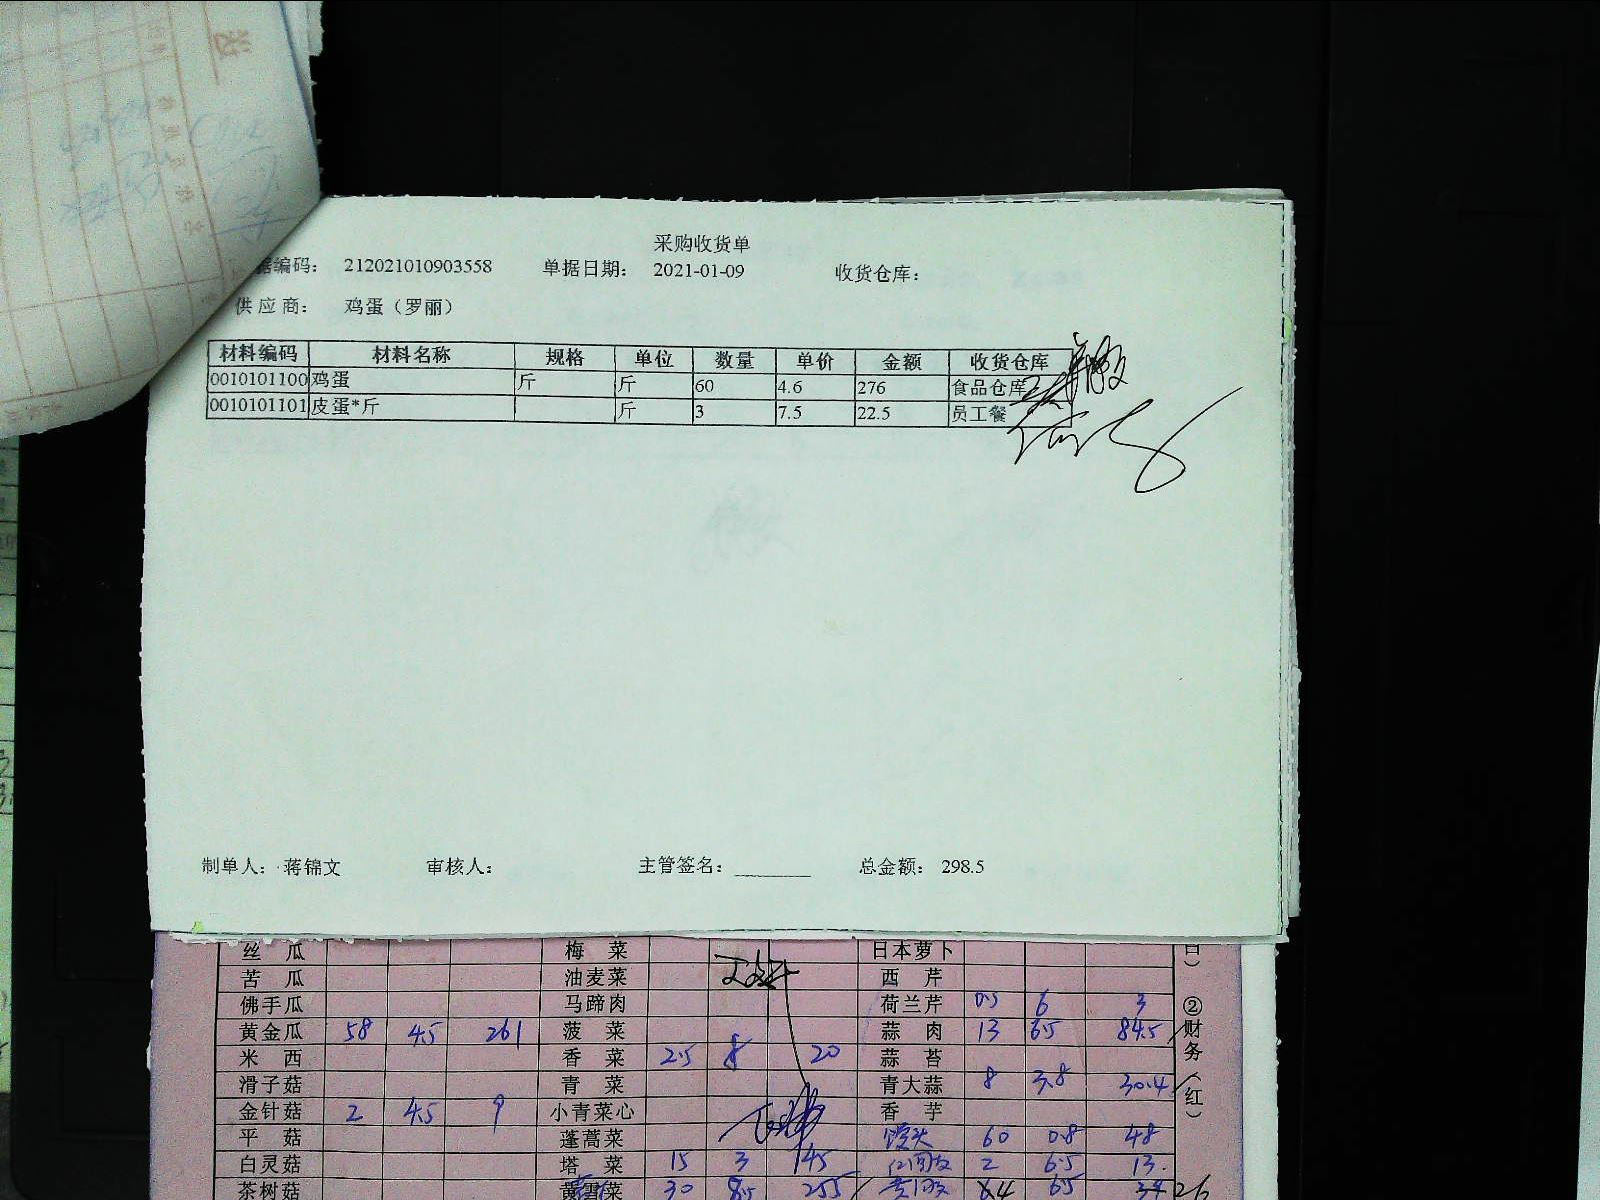 采购收货单
据编码： 212021010903558 单据日期： 2021-01-09 收货仓库：
供 应 商： 鸡蛋（罗丽）
材料编码 材料名称 规格 单位 数量 单价 金额 收货仓库
0010101100 鸡蛋 斤 斤 60 4.6 276 食品仓库
0010101101 皮蛋*斤 斤 3 7.5 22.5 员工餐
制单人： 蒋锦文 审核人： 主管签名： ________ 总金额： 298.5
丝 瓜 梅 菜 日本萝卜
苦 瓜 油麦菜 西 芹
佛手瓜 马蹄肉 荷兰芹 0.5 6 3
黄金瓜 58 4.5 261 菠 菜 蒜 肉 13 6.5 84.5
米 西 香 菜 2.5 8 20 蒜 苔
滑子菇 青 菜 青大蒜 8 3.8 30.4
金针菇 2 4.5 9 小青菜心 香 芋
平 菇 蓬蒿菜 馒头 60 0.8 48
白灵菇 塔 菜 15 3 45 2 6.5 13
茶树菇 黄雪菜 30 8.5 255 6.5 26
②财务（红）